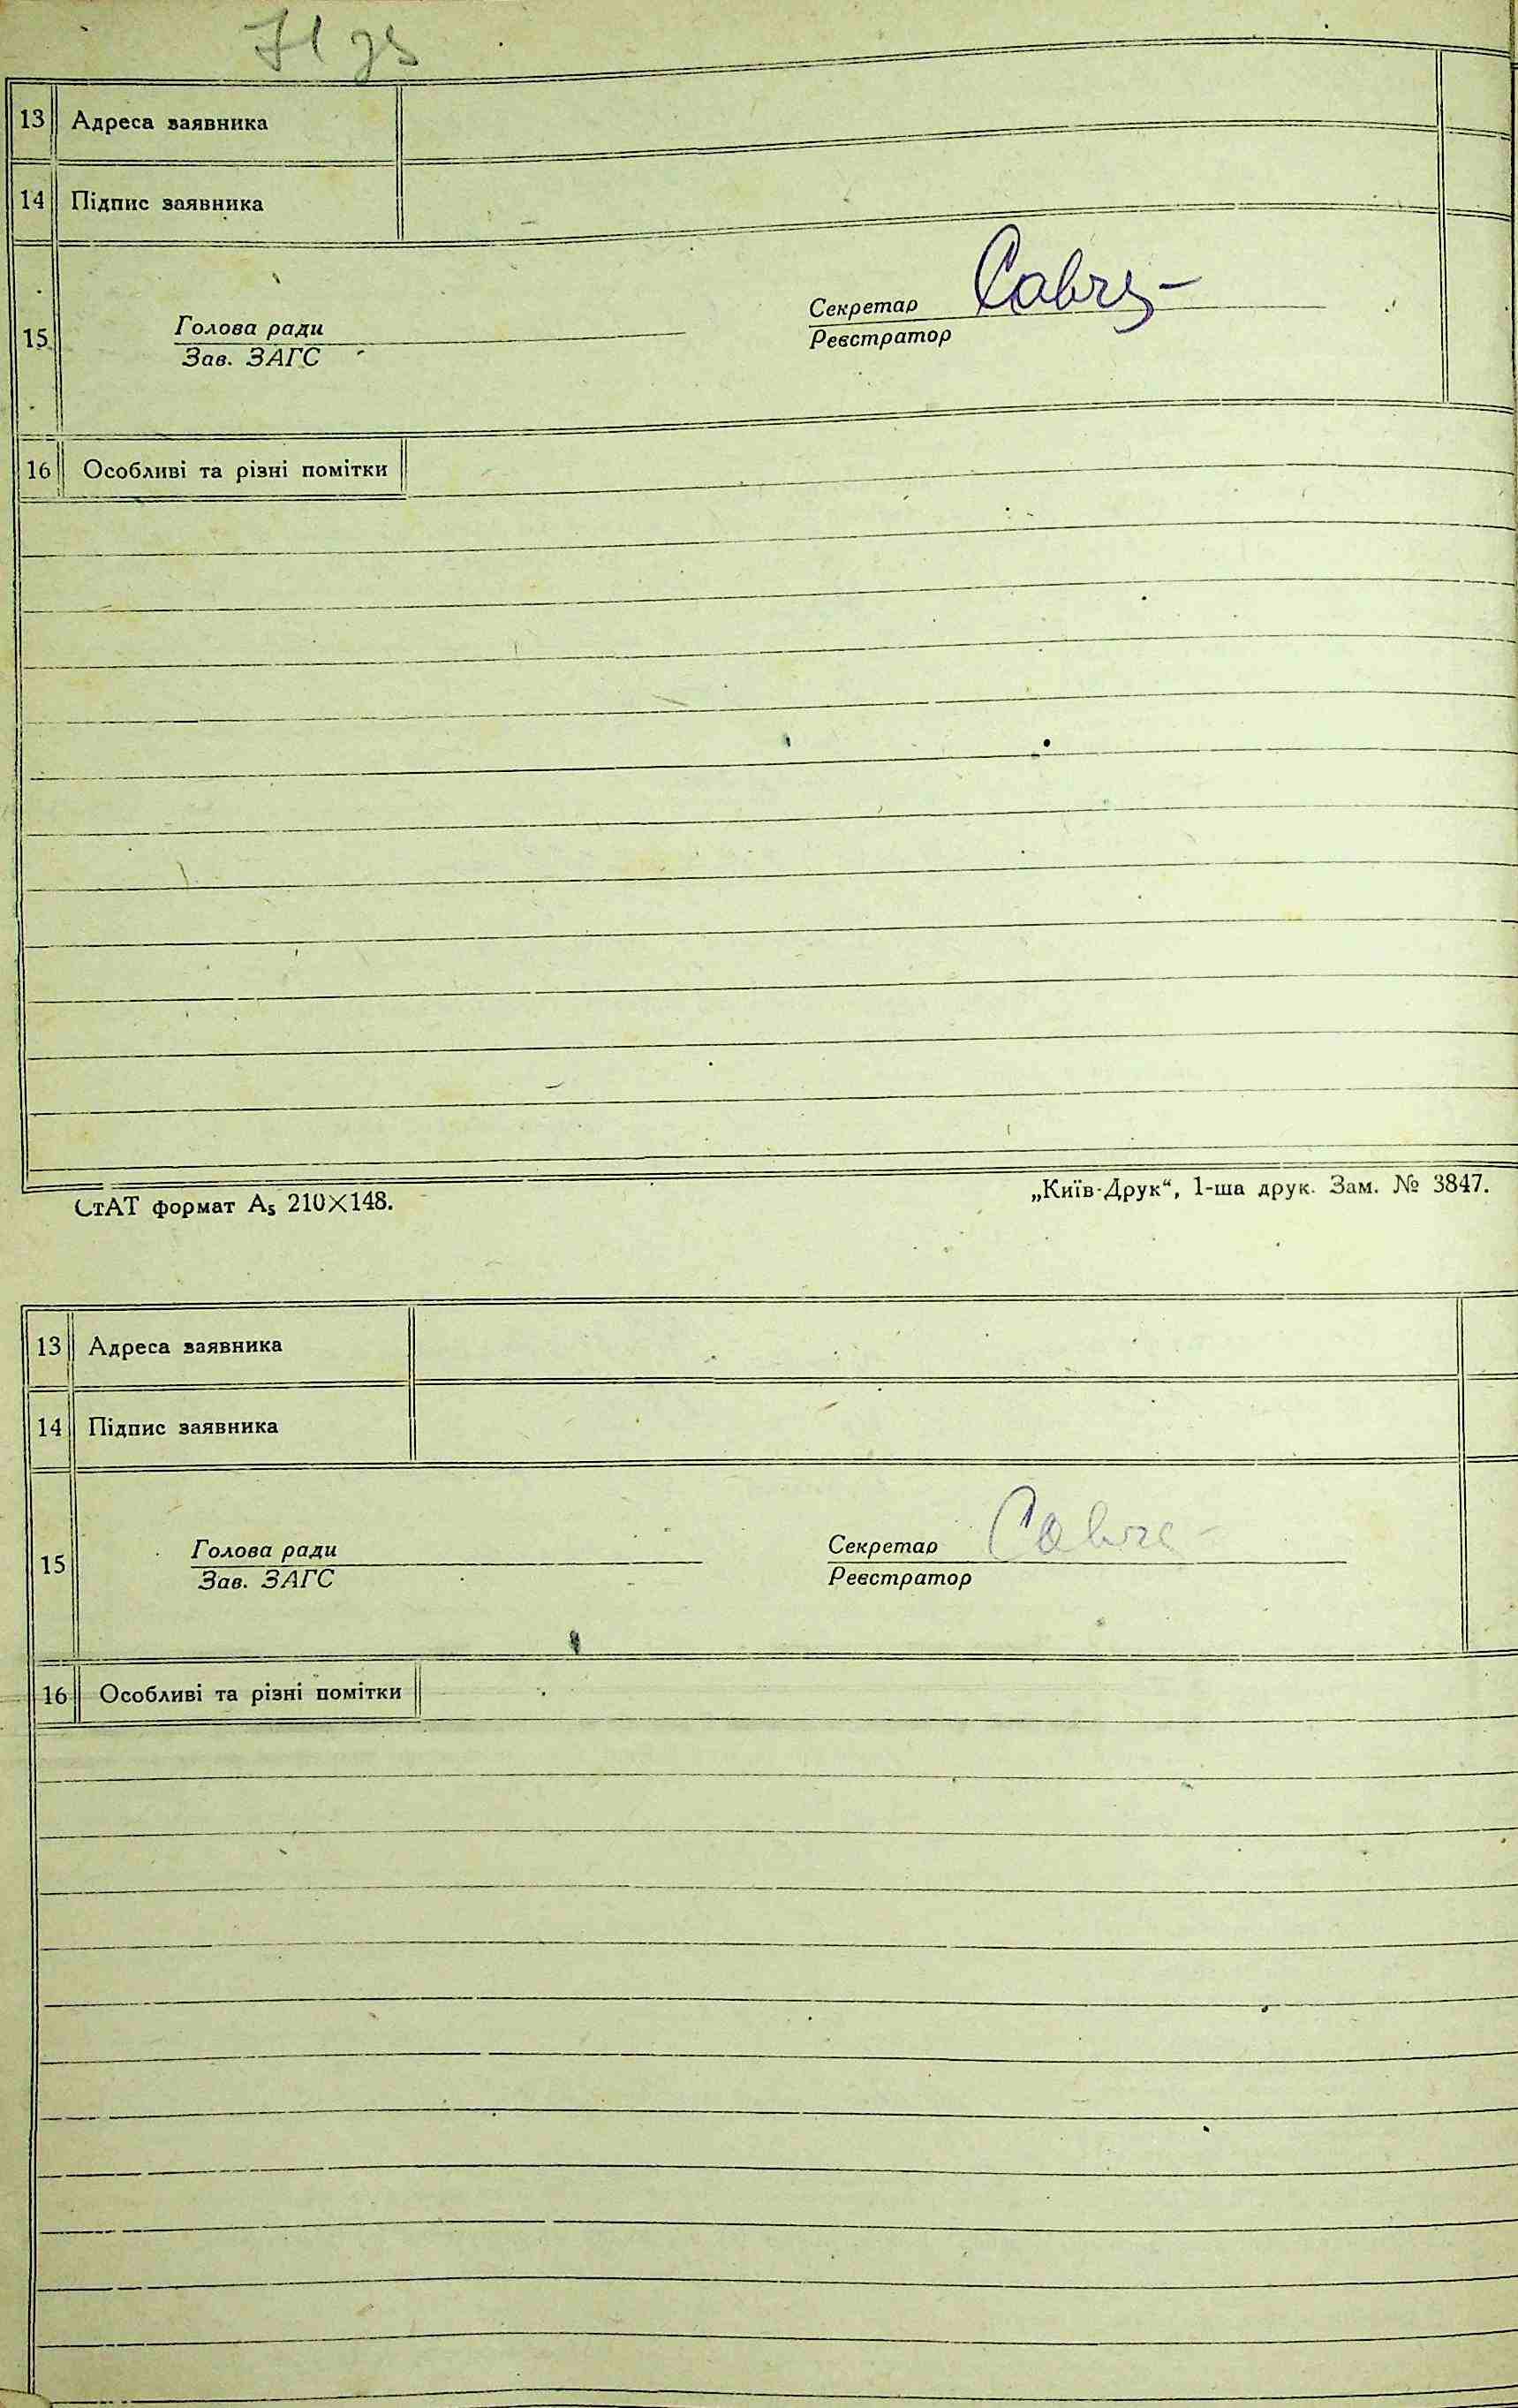 71 зв
13 Адреса заявника
14 Підпис заявника
15 Голова ради Секретар
Зав. ЗАГС Реєстратор
16 Особливі та різні помітки
СтАТ формат А₅ 210×148. „Київ-Друк“, 1-ша друк. Зам. № 3847.
13 Адреса заявника
14 Підпис заявника
15 Голова ради Секретар
Зав. ЗАГС Реєстратор
16 Особливі та різні помітки